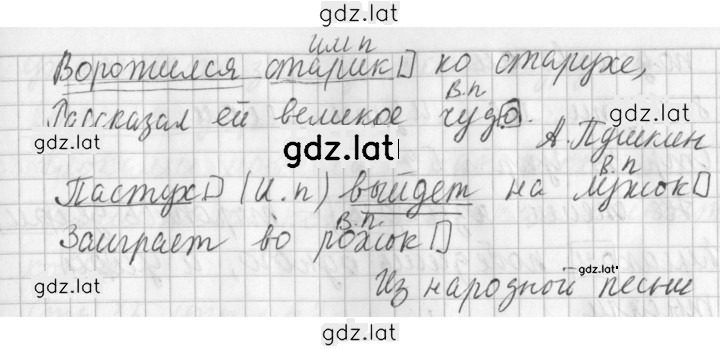 gdz.lat
им п
Воротился старик ко старухе,
В.п
Рассказал ей великое чудо.
gdz.lat
gdz.lat
gdz.lat
А. Пушкин
В.п
Пастух (И.п) выйдет на лужок
В.п.
Заиграет во рожок
gdz.lat
gdz.lat
Из народной песни
gdz.lat